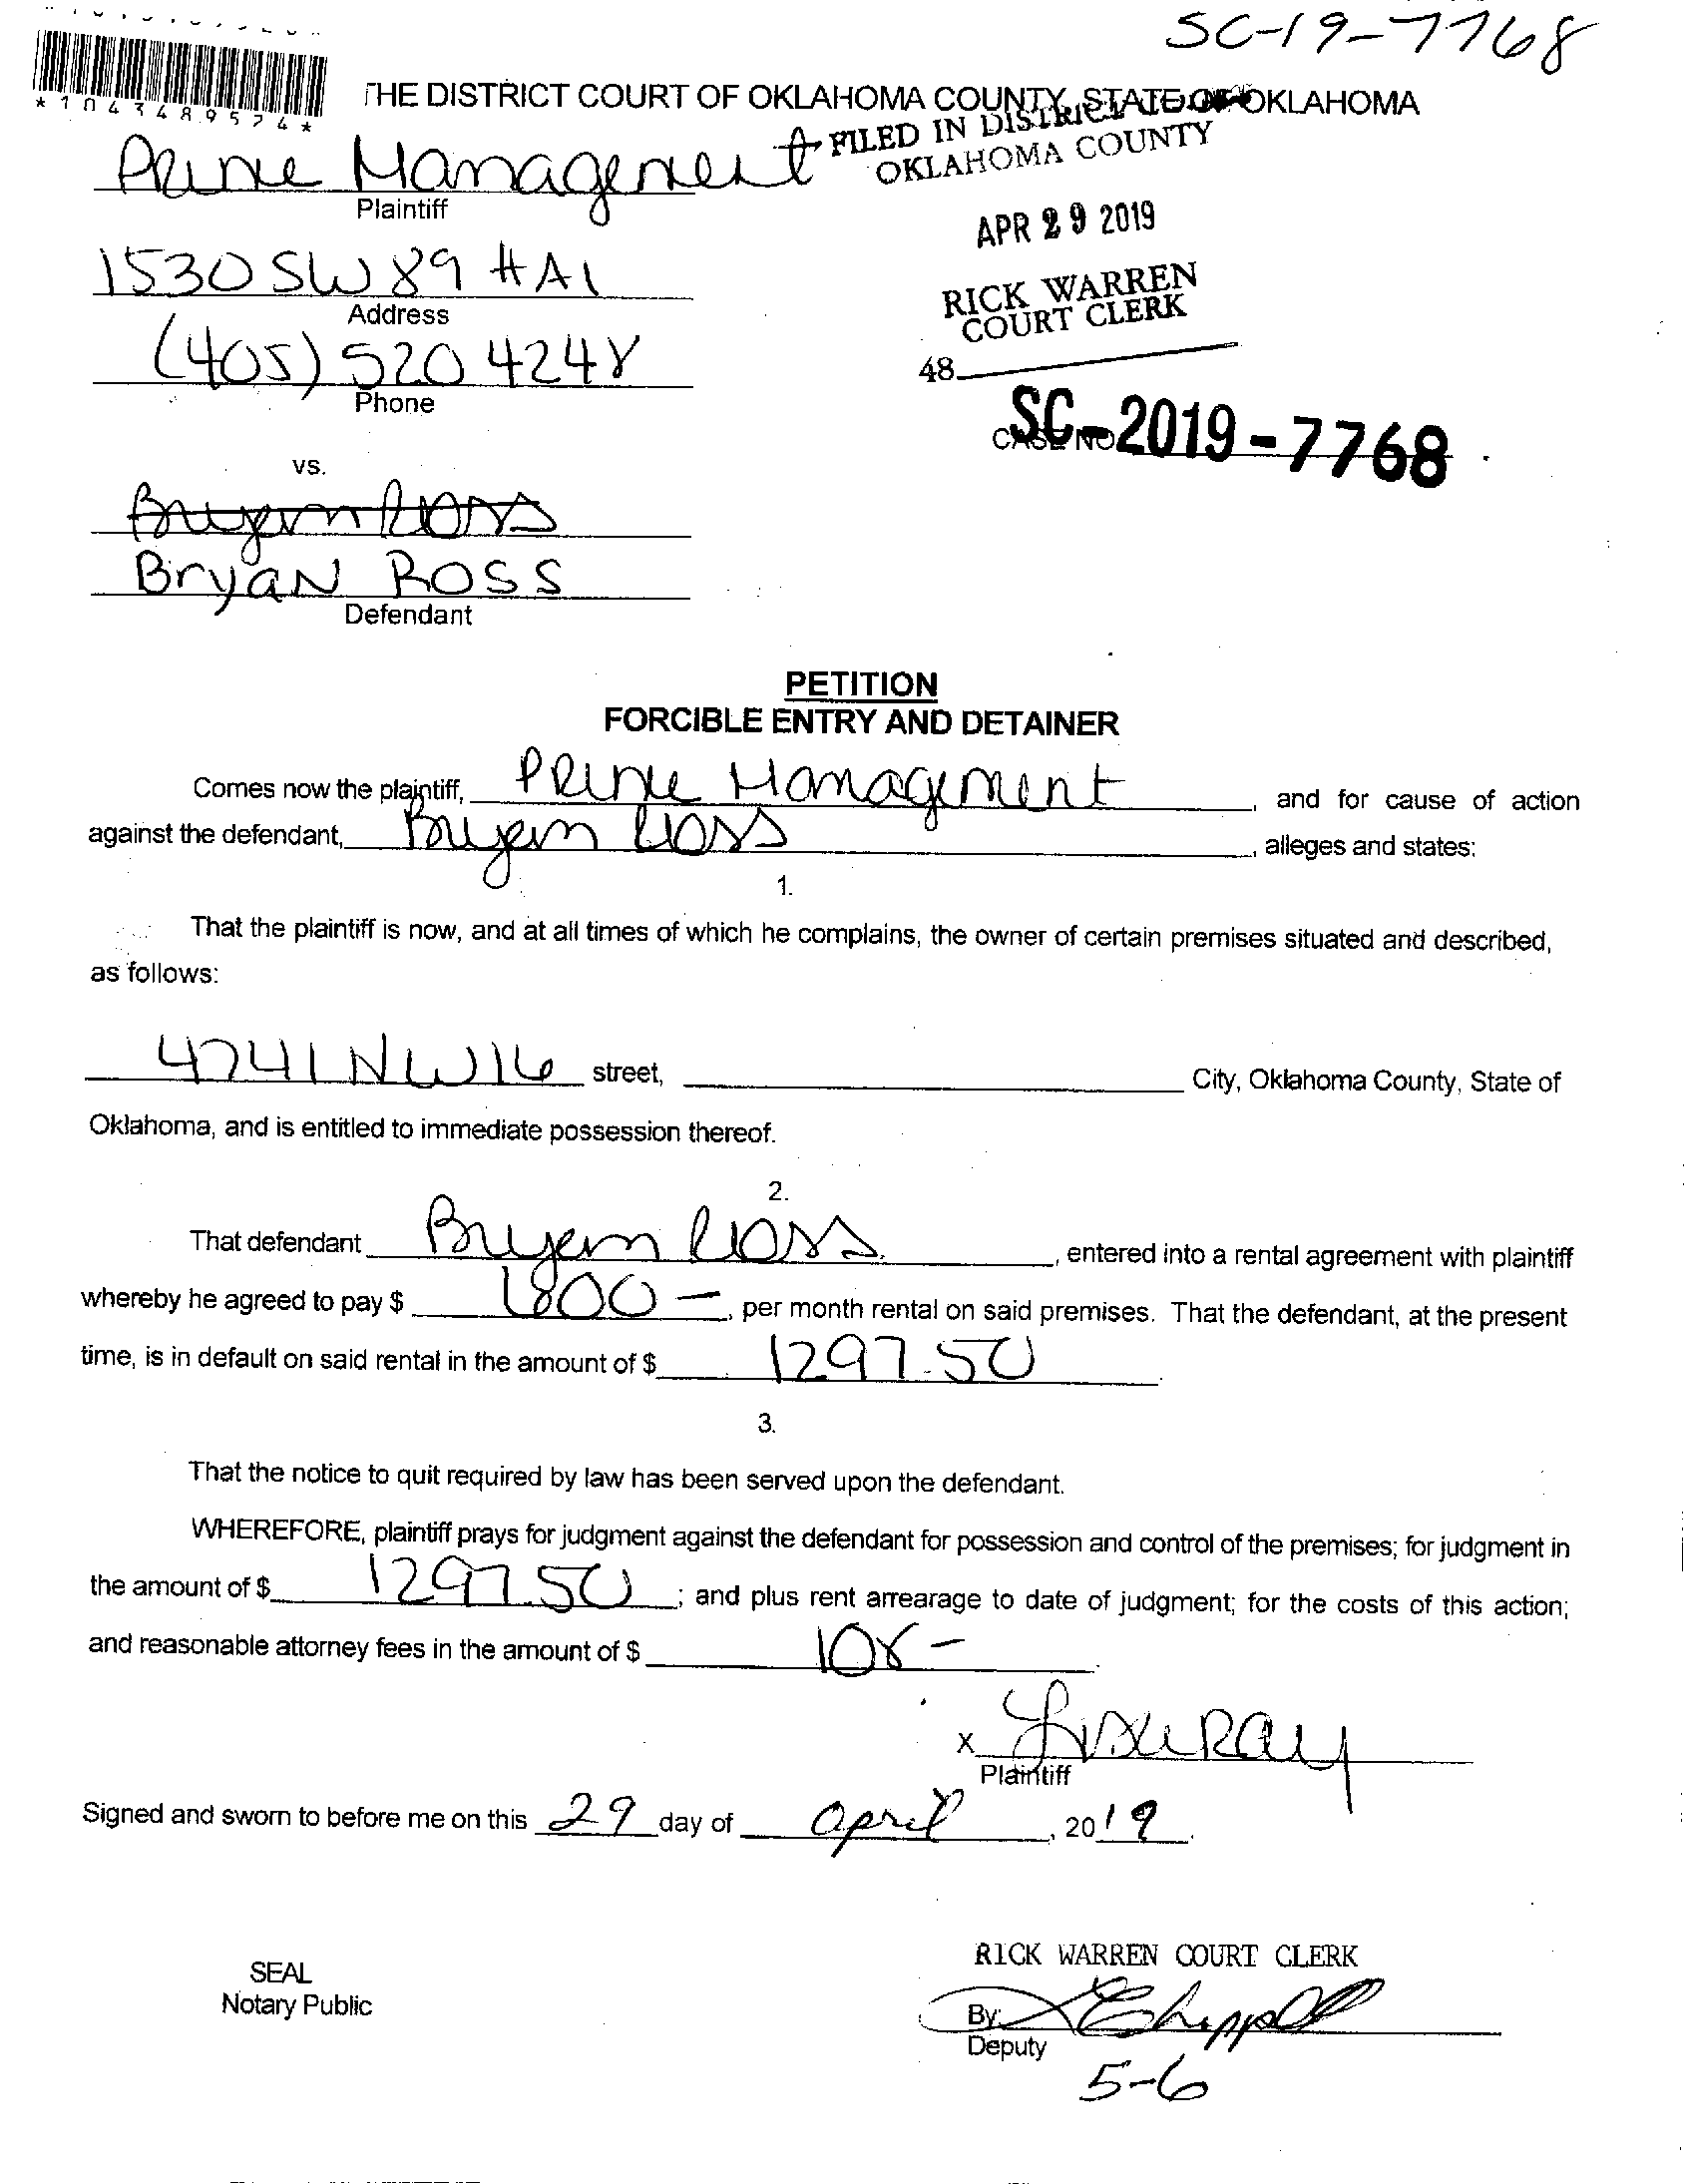 SC-19-7768
*1043489574*
THE DISTRICT COURT OF OKLAHOMA COUNTY, STATE OF OKLAHOMA
FILED IN DISTRICT
OKLAHOMA COUNTY
Management
Plaintiff
APR 29 2019
1530 SW 89 #A1
Address
RICK WARREN
COURT CLERK
(405) 520 4248
Phone
48
CASE NO. SC-2019-7768
vs.
Bryan Ross
Bryan Ross
Defendant
PETITION
FORCIBLE ENTRY AND DETAINER
Comes now the plaintiff, Management, and for cause of action
against the defendant, Bryan Ross, alleges and states:
1.
That the plaintiff is now, and at all times of which he complains, the owner of certain premises situated and described,
as follows:
4741 NW 16 street, City, Oklahoma County, State of
Oklahoma, and is entitled to immediate possession thereof.
2.
That defendant Bryan Ross, entered into a rental agreement with plaintiff
whereby he agreed to pay $ 800 –, per month rental on said premises. That the defendant, at the present
time, is in default on said rental in the amount of $ 1297.50.
3.
That the notice to quit required by law has been served upon the defendant.
WHEREFORE, plaintiff prays for judgment against the defendant for possession and control of the premises; for judgment in
the amount of $ 1297.50; and plus rent arrearage to date of judgment; for the costs of this action;
and reasonable attorney fees in the amount of $ 108 –
X
Plaintiff
Signed and sworn to before me on this 29 day of april, 2019.
RICK WARREN COURT CLERK
SEAL
Notary Public
By:
Deputy
5-6